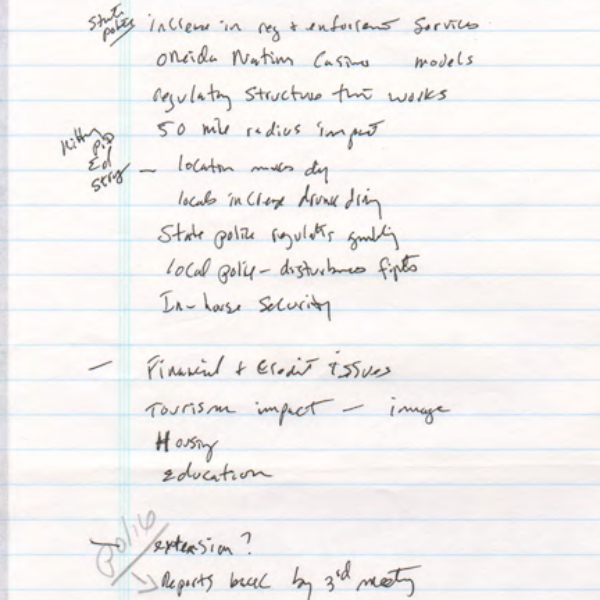 State police increase in reg + enforcement services
Oneida Nation Casino models
regulatory structure that works
50 mile radius impact
Ed
— location makes
locals increase drunk driving
State police regulates gambling
local police - disturbances fights
In-house Security
— Financial + Credit issues
Tourism impact — image
Housing
education
— extension?
Reports back by 3rd meeting